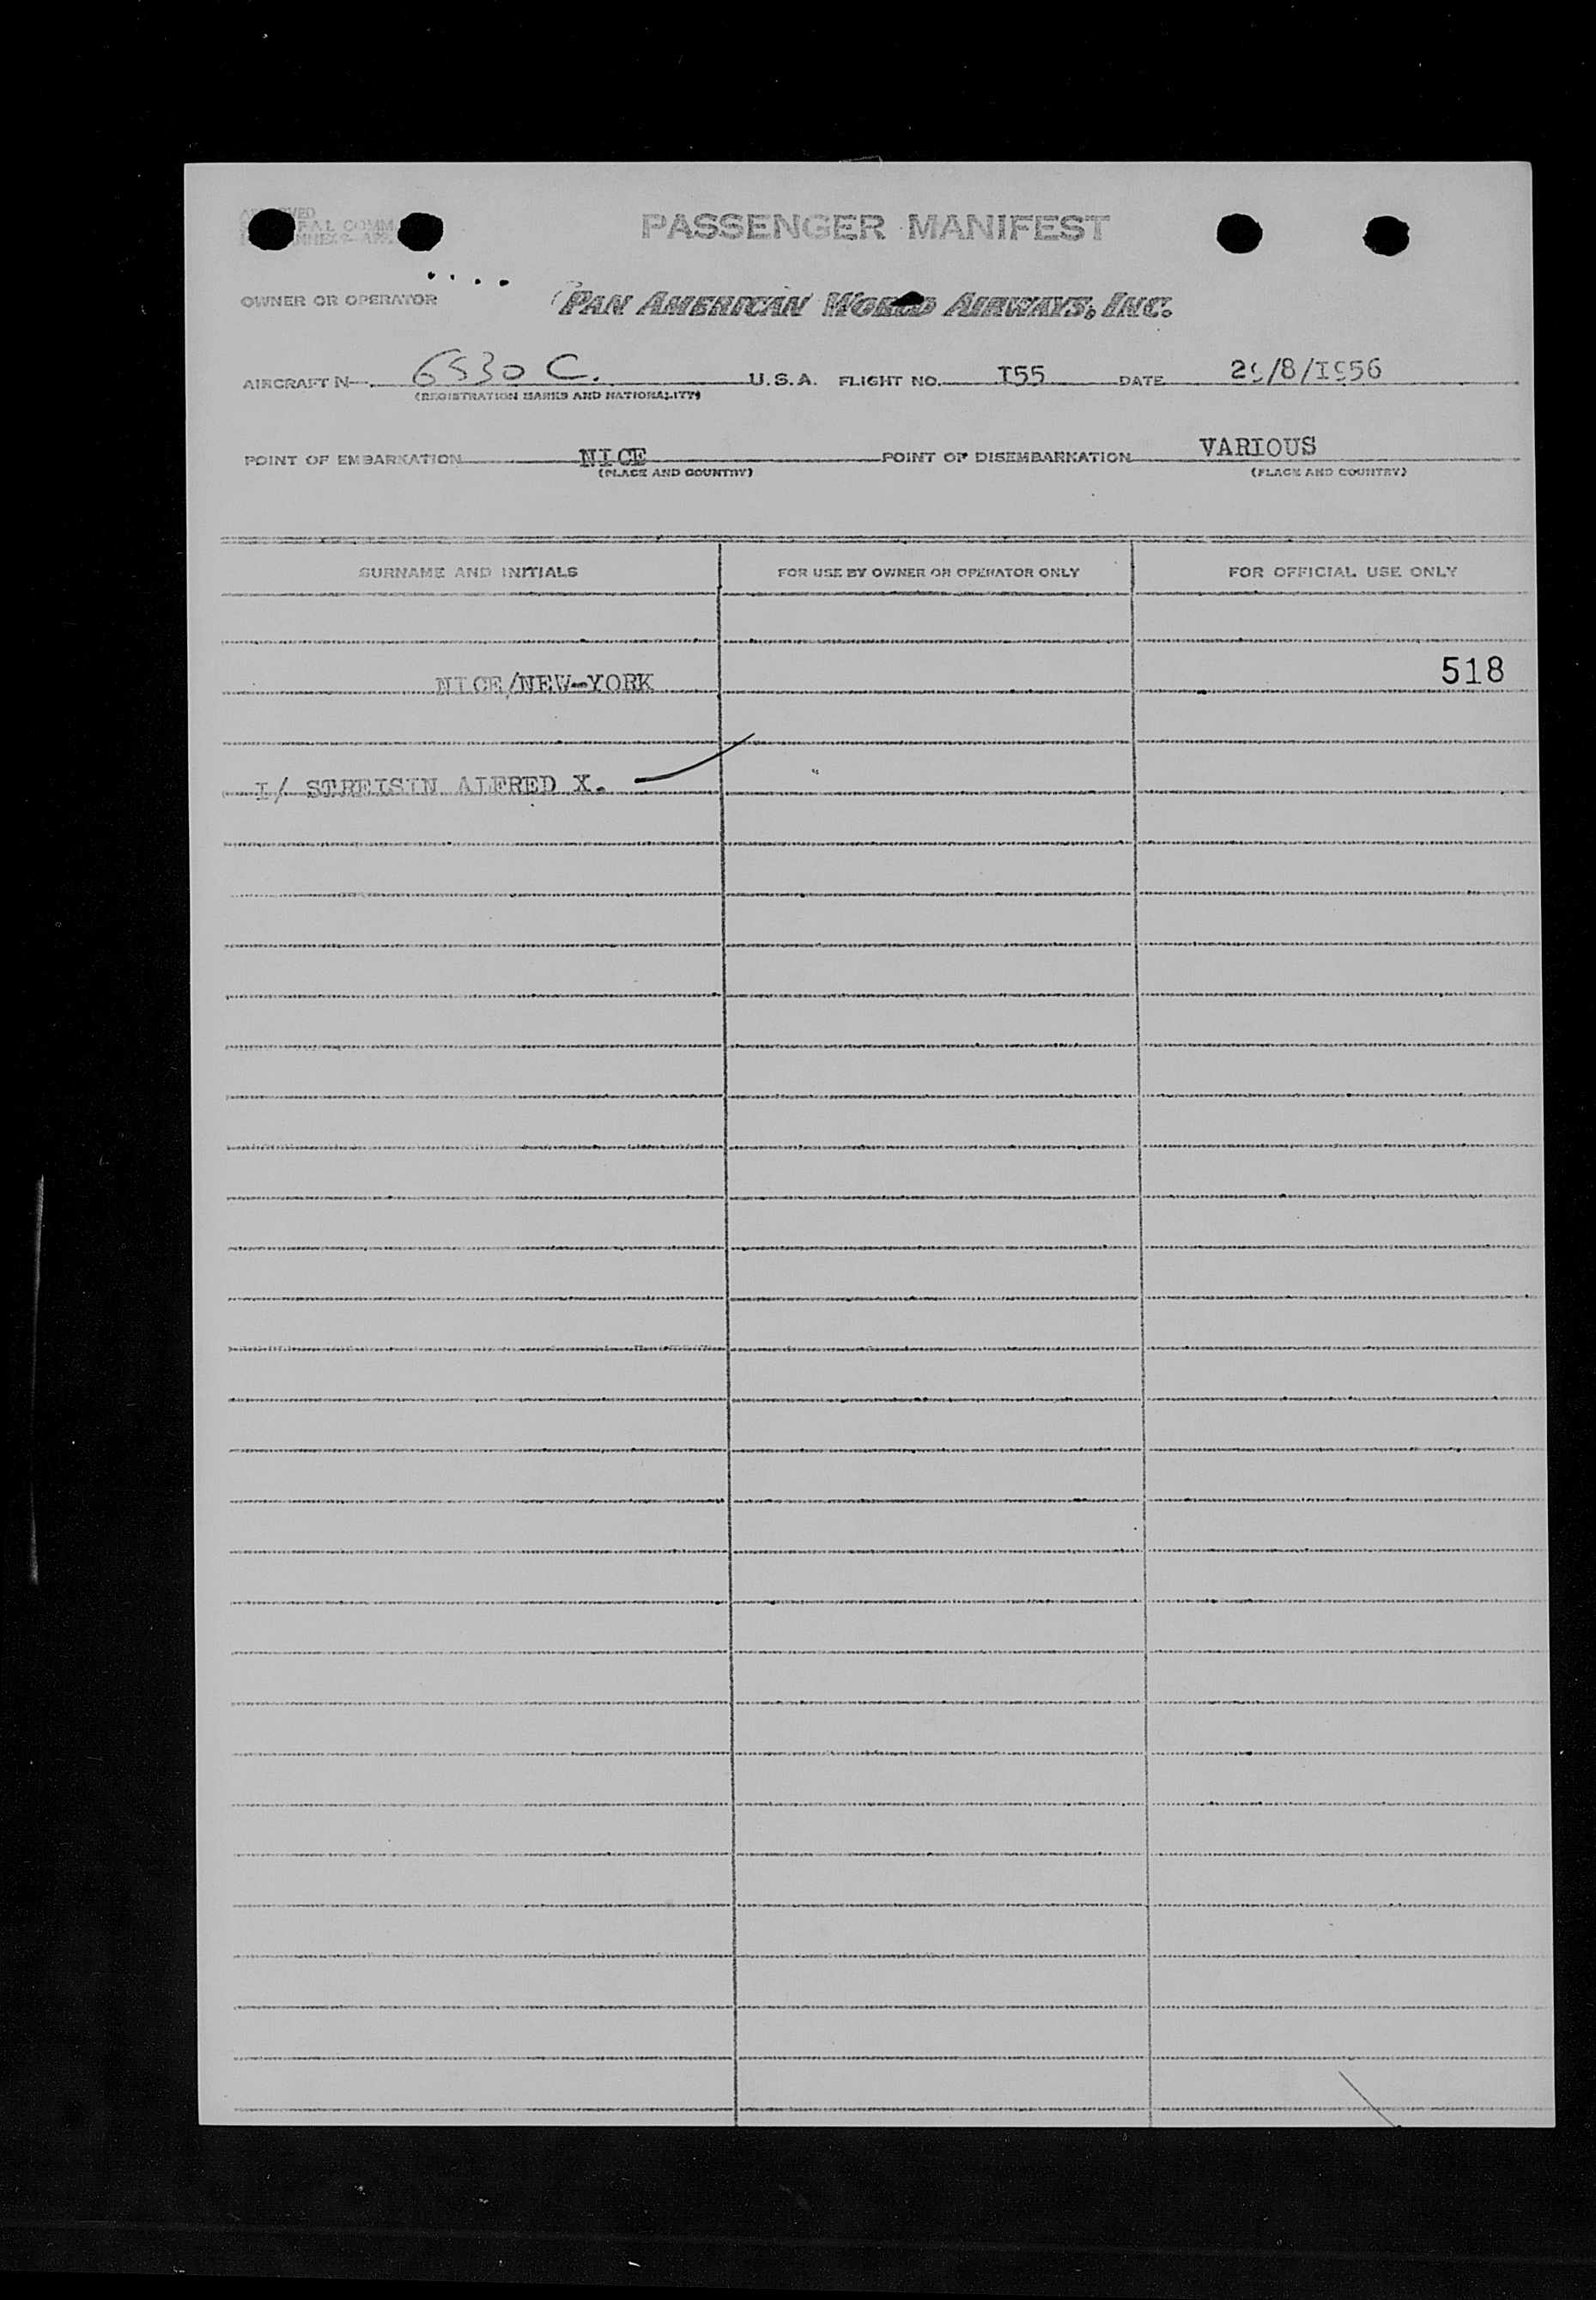 PASSENGER MANIFEST
OWNER OR OPERATOR PAN AMERICAN WORLD AIRWAYS, INC.
AIRCRAFT N— 6530 C. U.S.A. FLIGHT NO. I55 DATE 29/8/I956
(REGISTRATION MARKS AND NATIONALITY)
POINT OF EMBARKATION NICE POINT OF DISEMBARKATION VARIOUS
(PLACE AND COUNTRY) (PLACE AND COUNTRY)
SURNAME AND INITIALS FOR USE BY OWNER OR OPERATOR ONLY FOR OFFICIAL USE ONLY
NICE/NEW-YORK 518
I/ STREISIN ALFRED X.